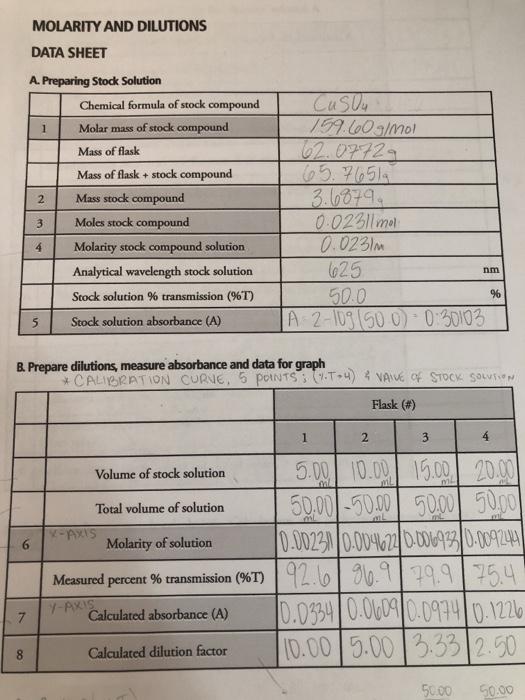 MOLARITY AND DILUTIONS
DATA SHEET
A. Preparing Stock Solution
Chemical formula of stock compound CuSO4
1 Molar mass of stock compound 159.60 g/mol
Mass of flask 62.0772g
Mass of flask + stock compound 65.7651g
2 Mass stock compound 3.6879g
3 Moles stock compound 0.02311 mol
4 Molarity stock compound solution 0.0231M
Analytical wavelength stock solution 625 nm
Stock solution % transmission (%T) 50.0 %
5 Stock solution absorbance (A) A = 2-log(50.0) = 0.30103
B. Prepare dilutions, measure absorbance and data for graph
* CALIBRATION CURVE, 5 POINTS: (%.T→4) & VALUE OF STOCK SOLUTION
Flask (#)
1 2 3 4
Volume of stock solution 5.00 mL 10.00 mL 15.00 mL 20.00 mL
Total volume of solution 50.00 mL -50.00 mL 50.00 mL 50.00 mL
6 X-AXIS Molarity of solution 0.002311 0.004622 0.006933 0.009244
Measured percent % transmission (%T) 92.6 86.9 79.9 75.4
7 Y-AXIS Calculated absorbance (A) 0.0334 0.0609 0.0974 0.1226
8 Calculated dilution factor 10.00 5.00 3.33 2.50
50.00 50.00